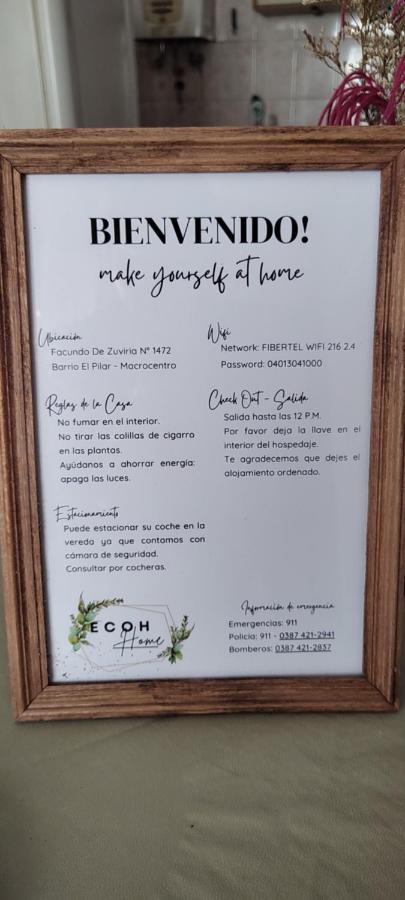 BIENVENIDO!
make yourself at home
Ubicación
Facundo De Zuviria N° 1472
Barrio El Pilar - Macrocentro
Wifi
Network: FIBERTEL WIFI 216 2.4
Password: 04013041000
Reglas de la Casa
No fumar en el interior.
No tirar las colillas de cigarro
en las plantas.
Ayúdanos a ahorrar energía:
apaga las luces.
Check Out - Salida
Salida hasta las 12 P.M.
Por favor deja la llave en el
interior del hospedaje.
Te agradecemos que dejes el
alojamiento ordenado.
Estacionamiento
Puede estacionar su coche en la
vereda ya que contamos con
cámara de seguridad.
Consultar por cocheras.
ECOH
Home
Información de emergencia
Emergencias: 911
Policía: 911 - 0387 421-2941
Bomberos: 0387 421-2837